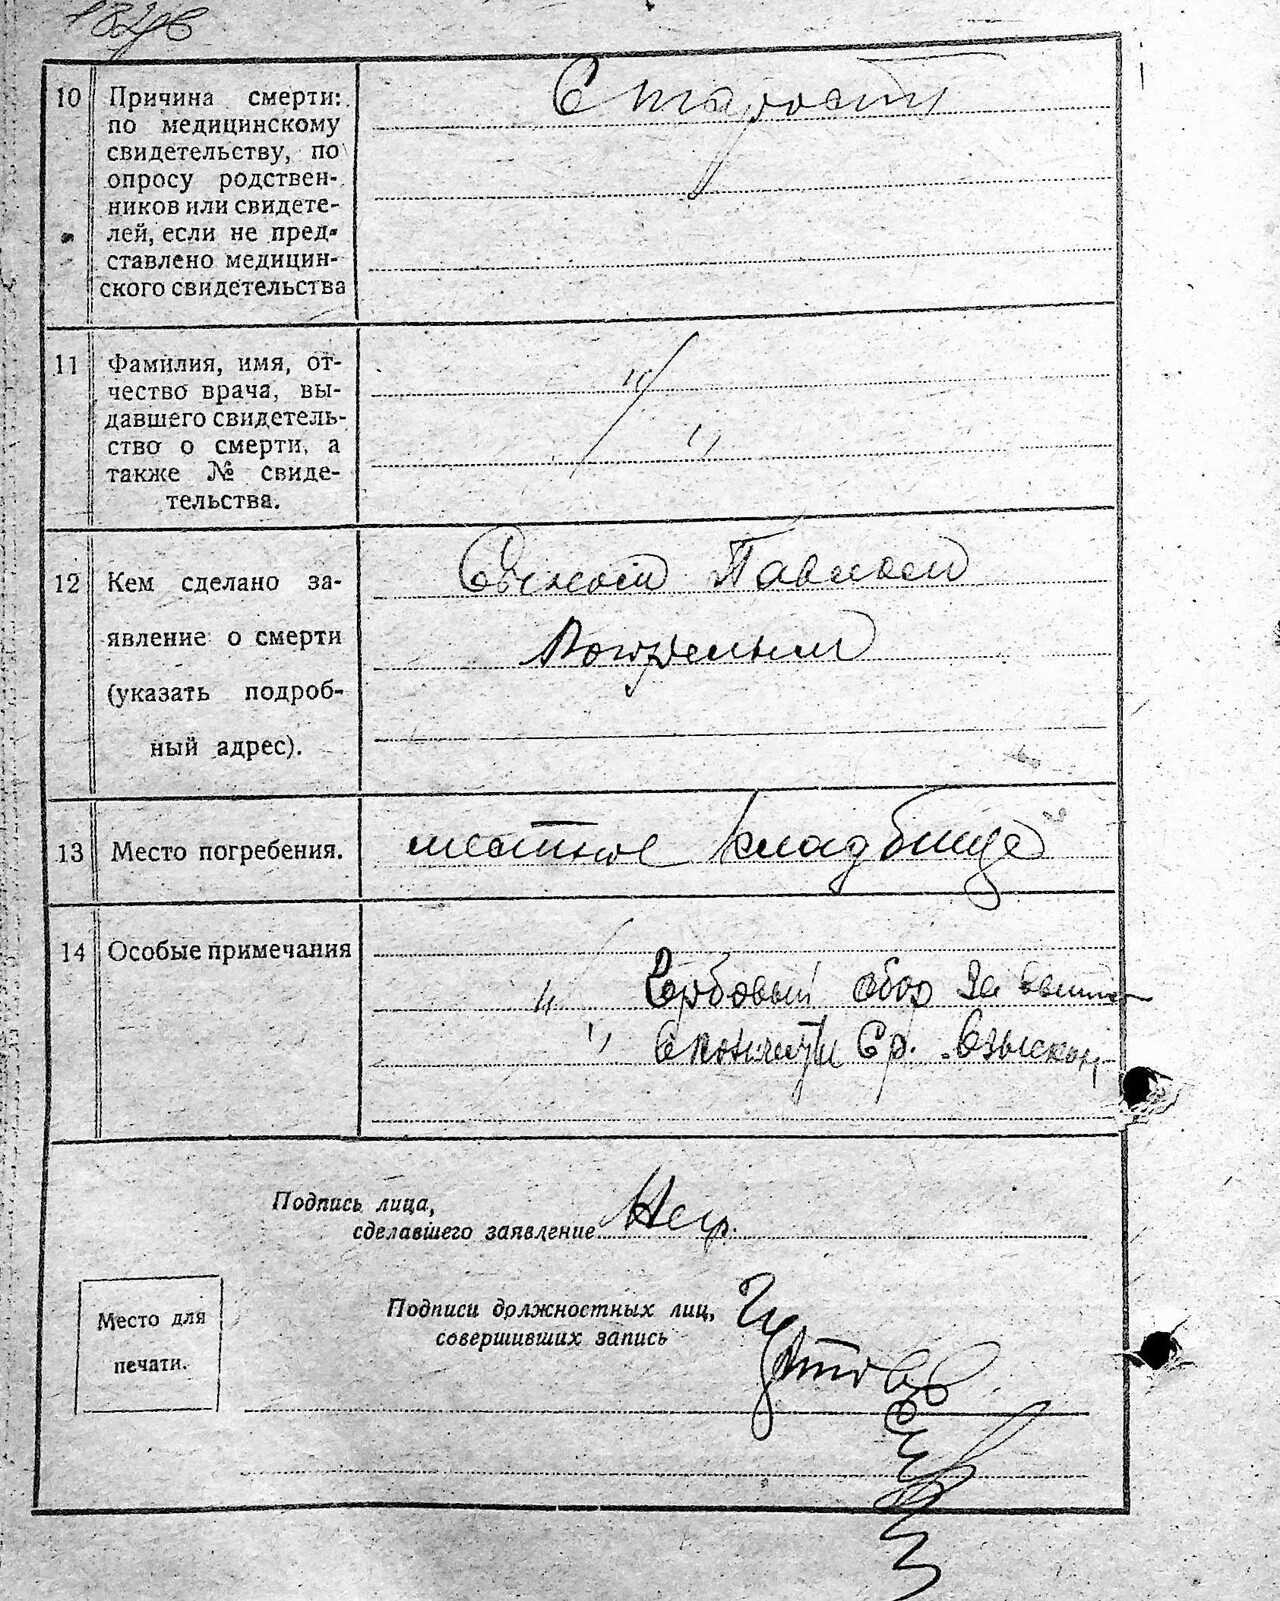 10 Причина смерти:
по медицинскому
свидетельству, по
опросу родствен-
ников или свидете-
лей, если не пред-
ставлено медицин-
ского свидетельства
Старости
11 Фамилия, имя, от-
чество врача, вы-
давшего свидетель-
ство о смерти, а
также № свиде-
тельства.
"
"
12 Кем сделано за-
явление о смерти
(указать подроб-
ный адрес).
Сыном Павлом
13 Место погребения.
местное кладбище
14 Особые примечания
Гербовый сбор за
" Ср. взыскан
Подпись лица,
сделавшего заявление Негр.
Подписи должностных лиц,
совершивших запись
Место для
печати.